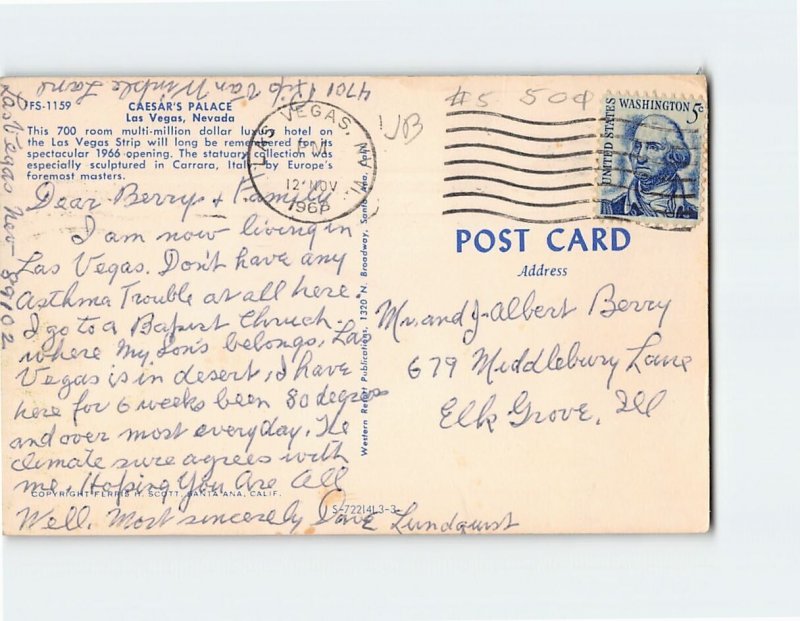 4701 Rip Van Winkle Lane
Las Vegas Nev- 89102
FS-1159
CAESAR'S PALACE
Las Vegas, Nevada
This 700 room multi-million dollar luxury hotel on
the Las Vegas Strip will long be remembered for its
spectacular 1966 opening. The statuary collection was
especially sculptured in Carrara, Italy by Europe's
foremost masters.
Dear Berrys + Family
I am now living in
Las Vegas. Don't have any
Asthma Trouble at all here
I go to a Bapist Chruch-
where my son's belongs. Las
Vegas is in desert, I have
here for 6 weeks been 80 degrees
and over most everyday. The
climate sure agrees with
me. Hoping You Are All
Well. Most sincerely Dave Lundquist
COPYRIGHT FERRIS H. SCOTT, SANTA ANA, CALIF.
S-72214L3-3
Western Resort Publications, 1320 N. Broadway, Santa Ana, Calif.
LAS VEGAS,
PM
12 NOV
1966
#5 50¢
UB
UNITED STATES
WASHINGTON 5c
POST CARD
Address
Mr. and J-Albert Berry
679 Middlebury Lane
Elk Grove, Ill